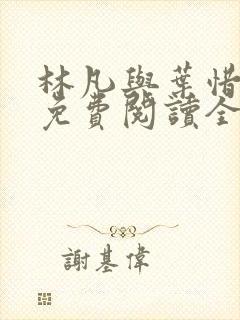 林凡與葉惜
免費閱讀全
謝基偉